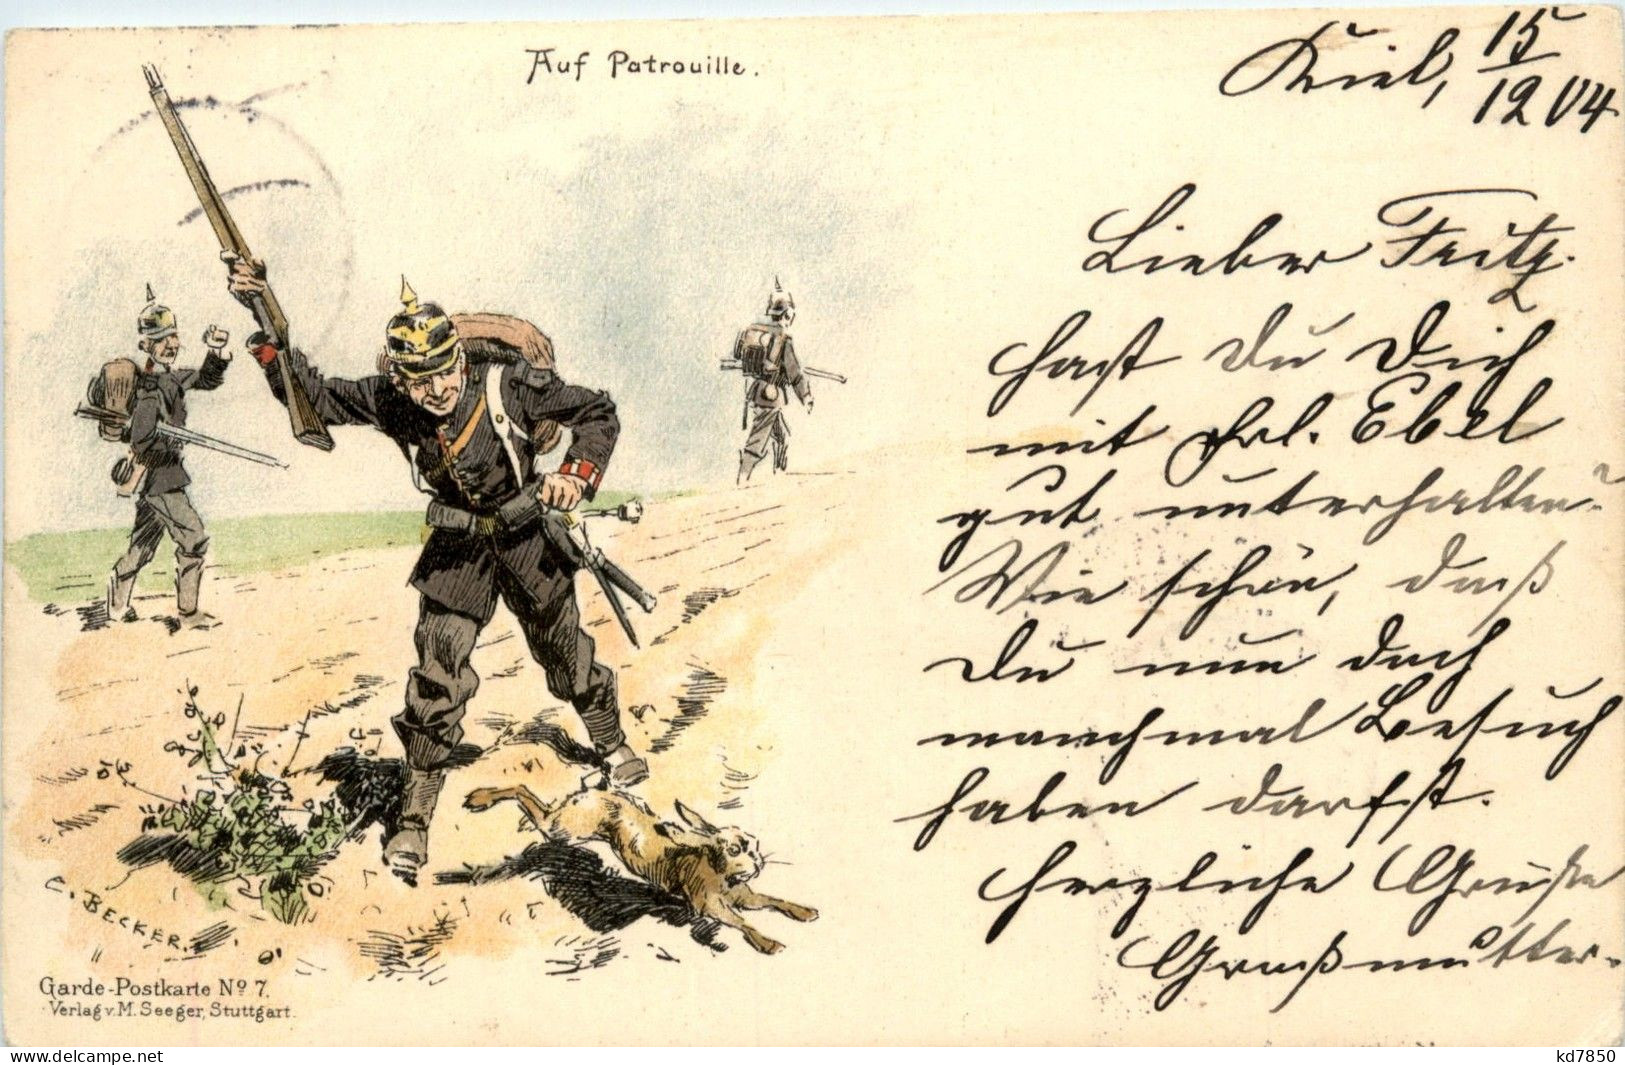 Auf Patrouille.
Kiel, 15/12 04
Lieber Fritz.
hast Du Dich
mit Frl. Ebel
gut unterhalten?
Wie schön, daß
Du nun doch
manchmal Besuch
haben darfst.
Herzliche Grüße
Großmutter.
C. BECKER.
Garde-Postkarte Nº 7.
Verlag v. M. Seeger, Stuttgart.
www.delcampe.net
kd7850